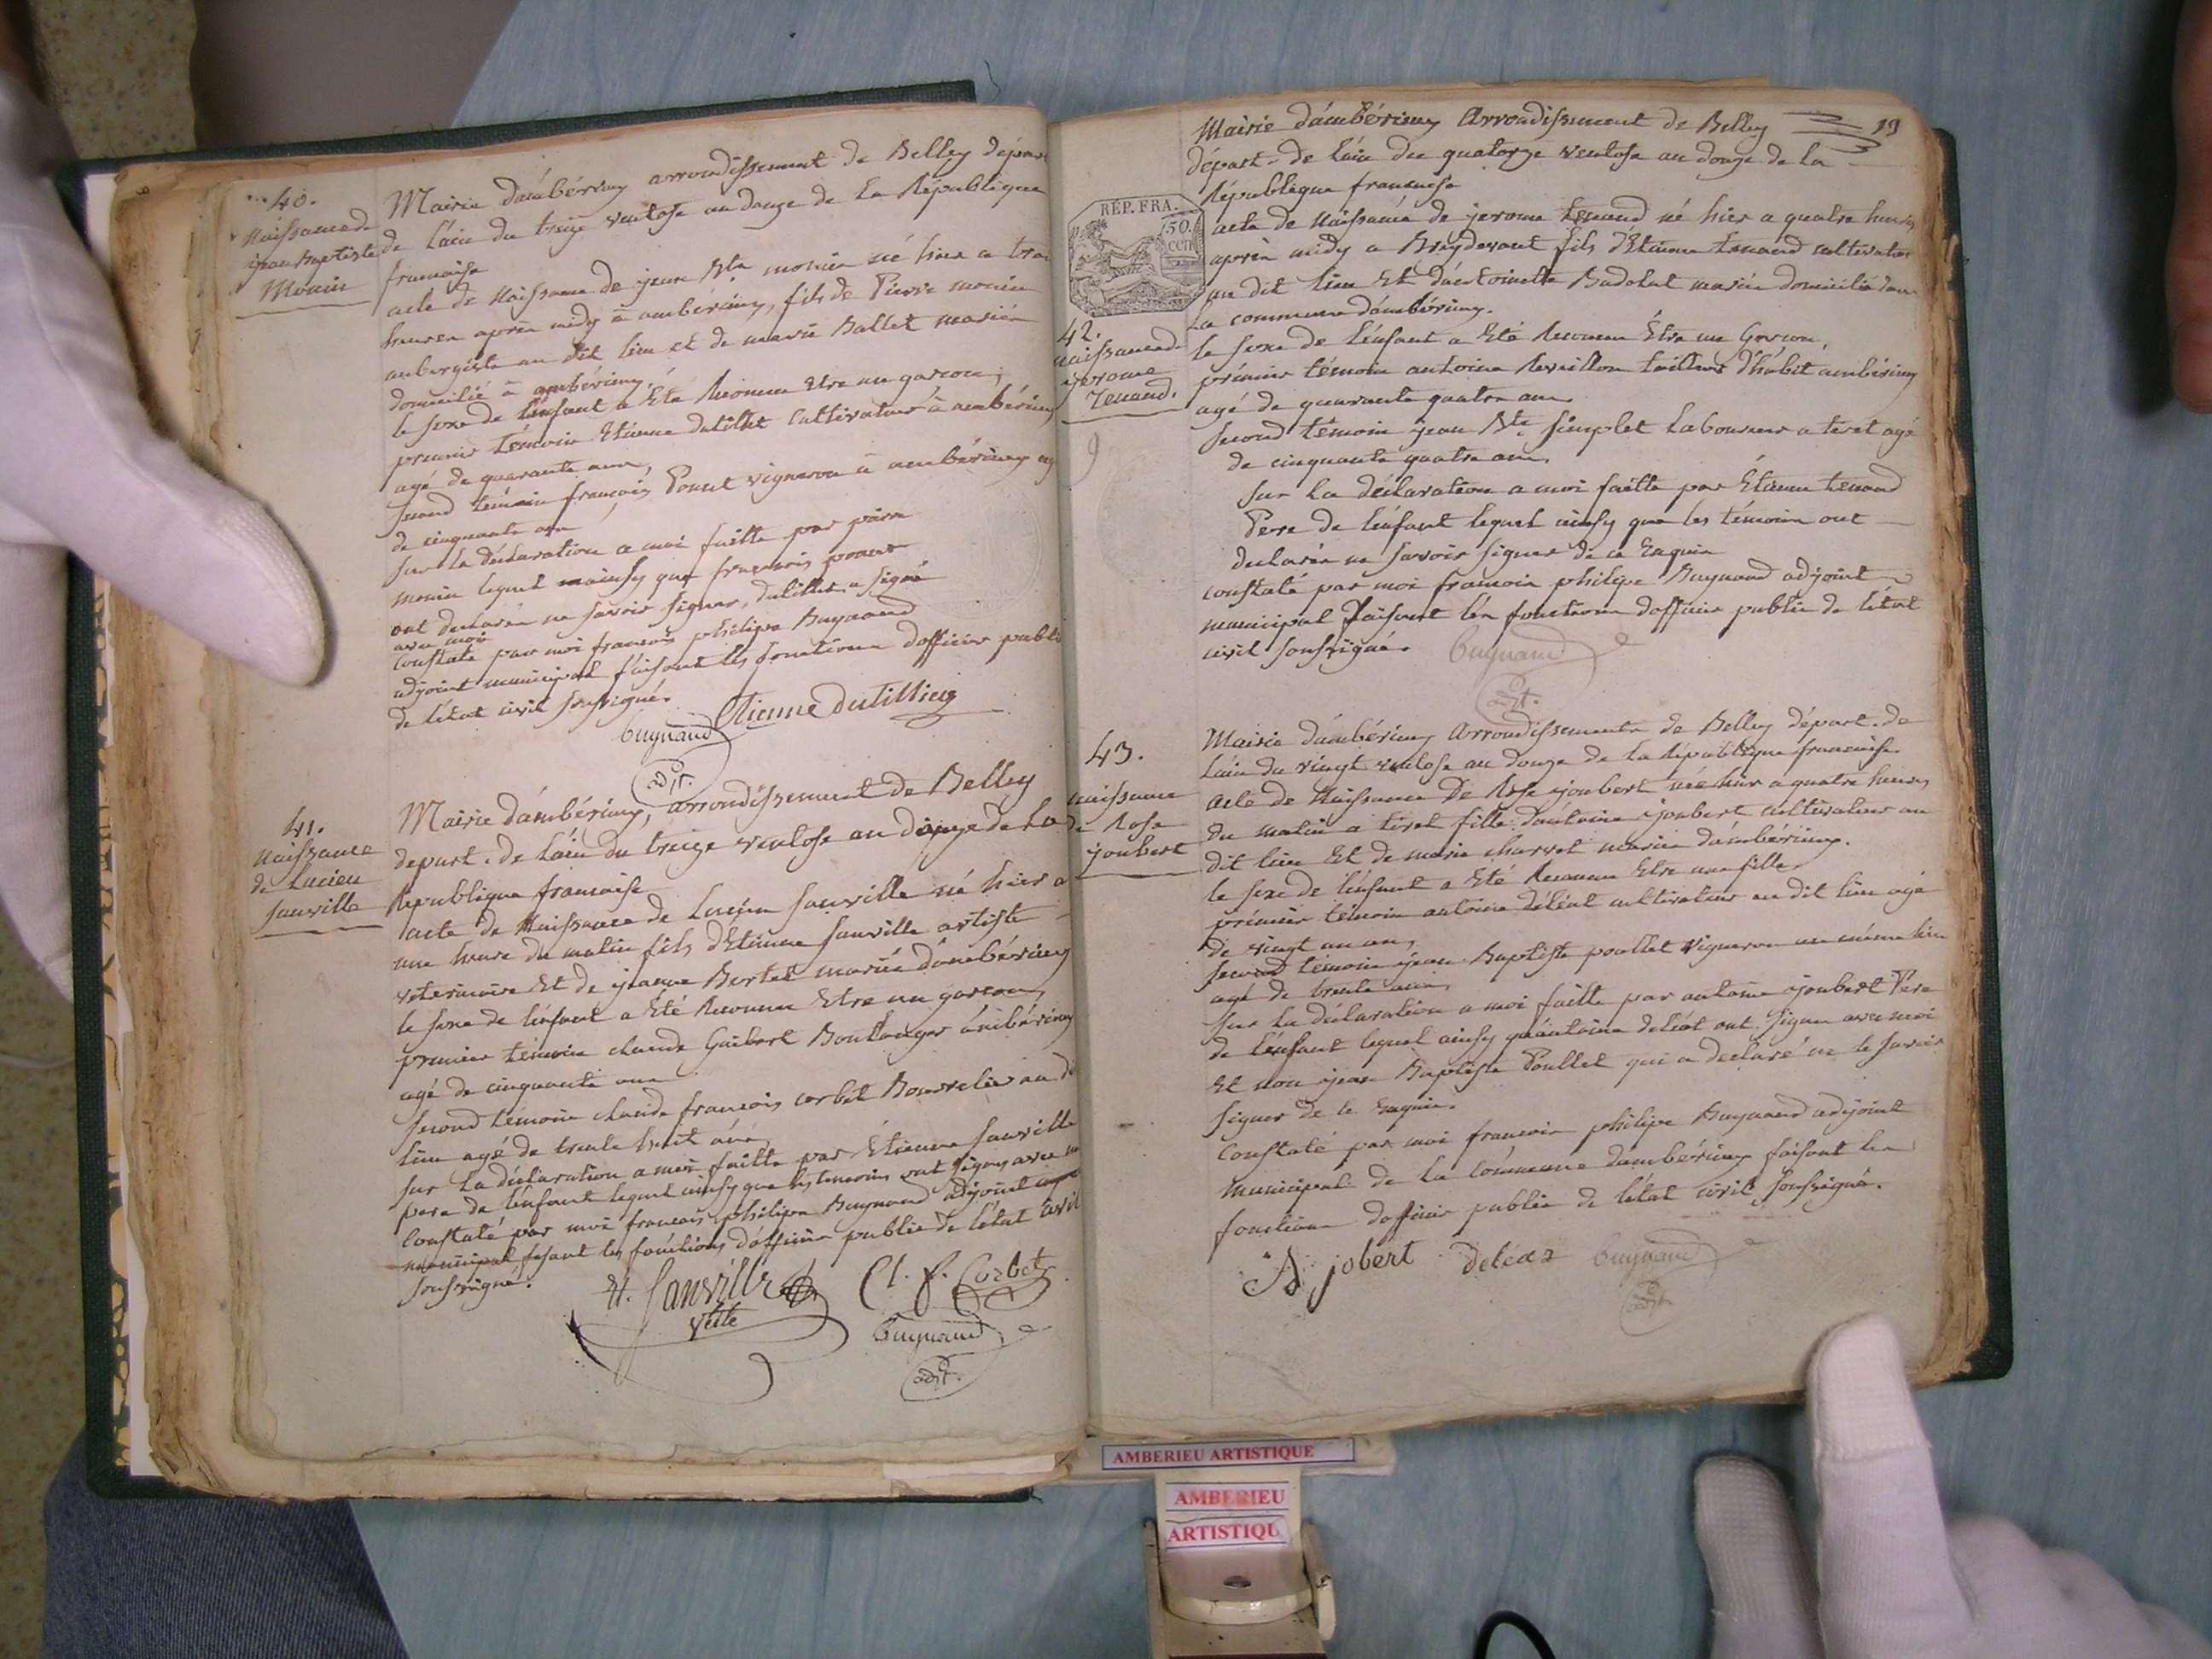 40.
Naissance de
jean Baptiste
Monin
Mairie d'ambérieuy arrondissement de Belley départ
de l'ain du treize ventose an douze de La République
francaise
acte de Naissance de jean Bte monin né hier a trois
heures après midy à ambérieuy, fils de Pierre monin
aubergiste au dit lieu et de marie Ballet mariés
domicilié à ambérieuy,
le sexe de l'enfant a Eté Reconnu Etre un garcon,
premier témoin Etienne dutillet Cultivateur à ambérieuy
agé de quarante ans,
second témoin françois Ponset vigneron à ambérieuy
de cinquante ans
sur la déclaration a moi faitte par pierre
monin lequel ainsy que francois
ont declarés ne savoir signer, dutillet a signé
avec moi
Constaté par moi francois philipe Buynand
adjoint municipal faisant les fonctions d'officier public
de l'état civil soussigné.
Etienne Dutillieu
Buynand
adjt.
41.
Naissance
de Lucien
Sauville
Mairie d'ambérieuy, arrondissement de Belley
depart. de L'ain du treize ventose an douze de La
Republique francaise
acte de Naissance de Lucien Sauville né hier a
une heure du matin fils d'Etienne Sauville artiste
veterinaire Et de jeanne Bertet mariés d'ambérieuy
le sexe de l'enfant a Eté Reconnu Etre un garcon,
premier témoin claude Guibert Boulanger ambérieuy
agé de cinquante ans
second témoin claude françois corbet Bourrelier au dit
lieu agé de trente huit ans,
sur La déclaration a moi faitte par Etienne Sauville
pere de l'enfant lequel ainsy que les temoins ont signes avec
Constaté par moi francois philipe Buynand adjoint
municipal fesant les fonctions d'officier public de l'état civil
soussigné.
Et. Sauville
Vette
Cl. f. Corbet
Buynand
adjt.
19
Mairie d'ambérieuy Arrondissement de Belley
départ. de l'ain du quatorze ventose an douze de la
République francaise
RÉP. FRA.
50.
CEN
42.
Naissance de
jerome
Tenand.
acte de Naissance de jerome tenand né hier a quatre heures
après midy a Breydevant fils d'Etienne tenand cultivateur
au dit lieu Et d'antoinette Badolat mariés domiciliés dans
La commune d'ambérieuy.
le sexe de l'enfant a Eté Reconnu Être un Garcon,
prémier témoin antoine Revillon tailleur d'habit ambérieuy
agé de quarante quatre ans
second témoin jean Bte simplet Laboureur a tiret agé
de cinquante quatre ans,
sur La déclaration a moi faitte par Étienne tenand
Pere de l'enfant lequel ainsy que les témoins ont
declarés ne savoir signer de ce Enquis
constaté par moi francois philipe Buynand adjoint
municipal faisant les fonctions d'officier public de l'état
civil soussigné.
Buynand
adjt.
43.
naissance
de Rose
joubert
Mairie d'ambérieuy Arrondissement de Belley départ. de
L'ain du vingt ventose an douze de La République francaise.
acte de Naissance De Rose joubert née hier a quatre heures
du matin a tiret fille d'antoine joubert cultivateur au
dit lieu Et de marie charvet mariés d'ambérieuy.
le sexe de l'enfant a Eté Reconnu Etre une fille
prémier témoin antoine déléat cultivateur au dit lieu agé
de vingt un an,
second témoin jean Baptiste poullet vigneron au même lieu
agé de trente ans,
sur La déclaration a moi faitte par antoine joubert Pere
de l'enfant lequel ainsy qu'antoine deléat ont signer avec moi
Et non jean Baptiste Poullet qui a declaré ne le savoir
signer de ce Enquis.
Constaté par moi francois philipe Buynand adjoint
municipal de La commune d'ambérieuy faisant les
fonctions d'officier public de l'état civil soussigné.
A jobert
Deléaz
Buynand
adjt
AMBERIEU ARTISTIQUE
AMBERIEU
ARTISTIQU